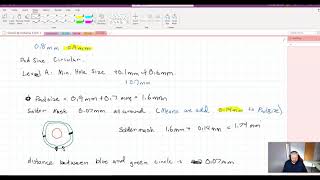 0.8mm 0.9mm
Pad Size Circular.
Level A: Min. Hole Size + 0.1mm + 0.6mm
0.7mm
Padsize = 0.9mm + 0.7mm = 1.6mm
Solder Mask 0.07mm all around (Means we add 0.14mm to Padsize)
Soldermask 1.6mm + 0.14mm = 1.74mm
distance between blue and green circle is 0.07mm